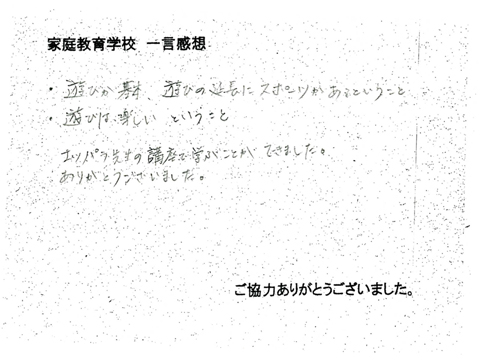 家庭教育学校 一言感想
・遊びが基本、遊びの延長にスポーツがあるということ
・遊びは楽しい ということ
オツパラ先生の講座で学ぶことができました。
ありがとうございました。
ご協力ありがとうございました。